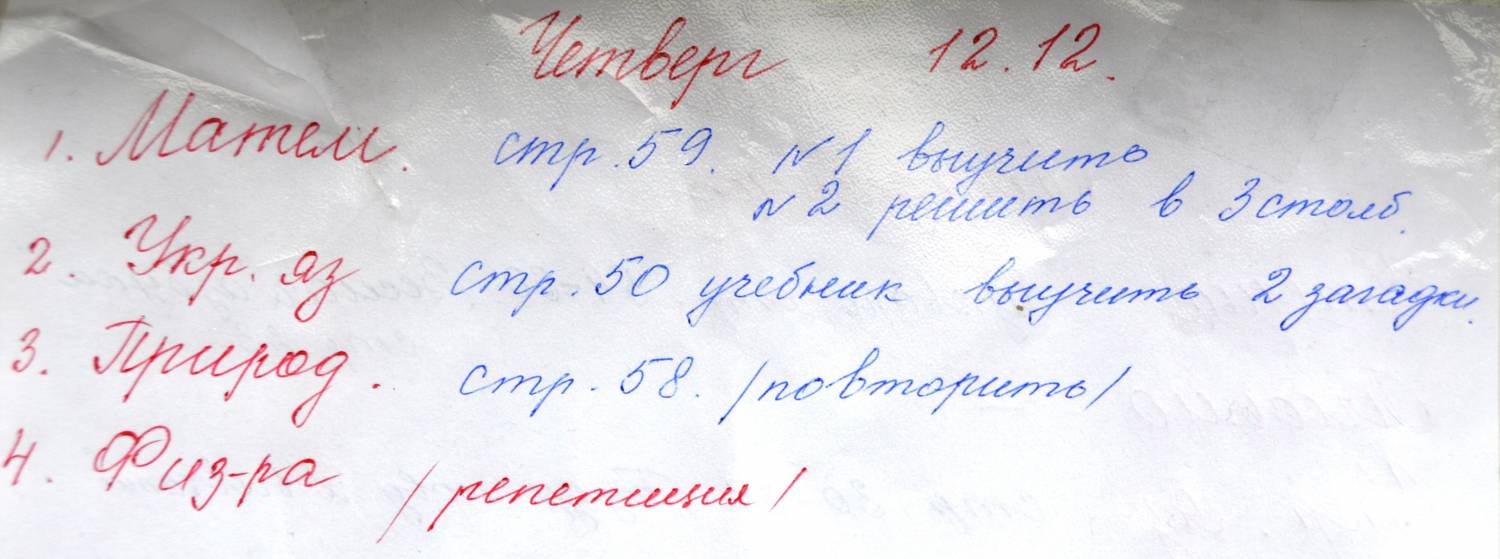 Четверг 12.12.
1. Матем. стр. 59. №1 выучить
№2 решить в 3 столб.
2. Укр. яз стр. 50 учебник выучить 2 загадки.
3. Природ. стр. 58. /повторить/
4. Физ-ра /репетиция/